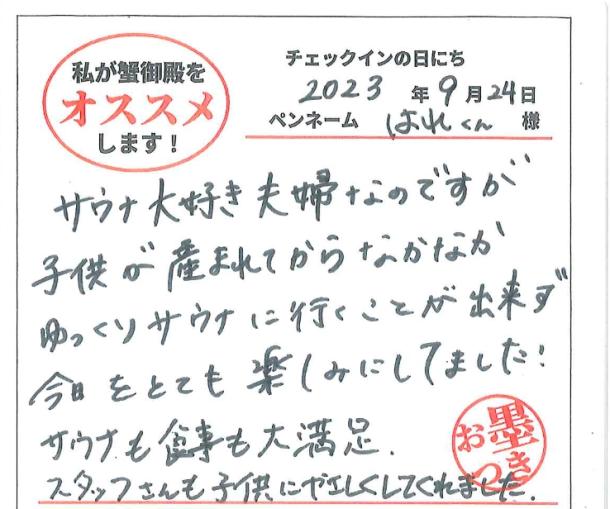 私が蟹御殿を
オススメ
します!
チェックインの日にち
2023年9月24日
ペンネーム はれくん 様
サウナ大好き夫婦なのですが
子供が産まれてからなかなか
ゆっくりサウナに行くことが出来ず
今日をとても楽しみにしてました!
サウナも食事も大満足.
スタッフさんも子供にやさしくしてくれました.
お墨つき